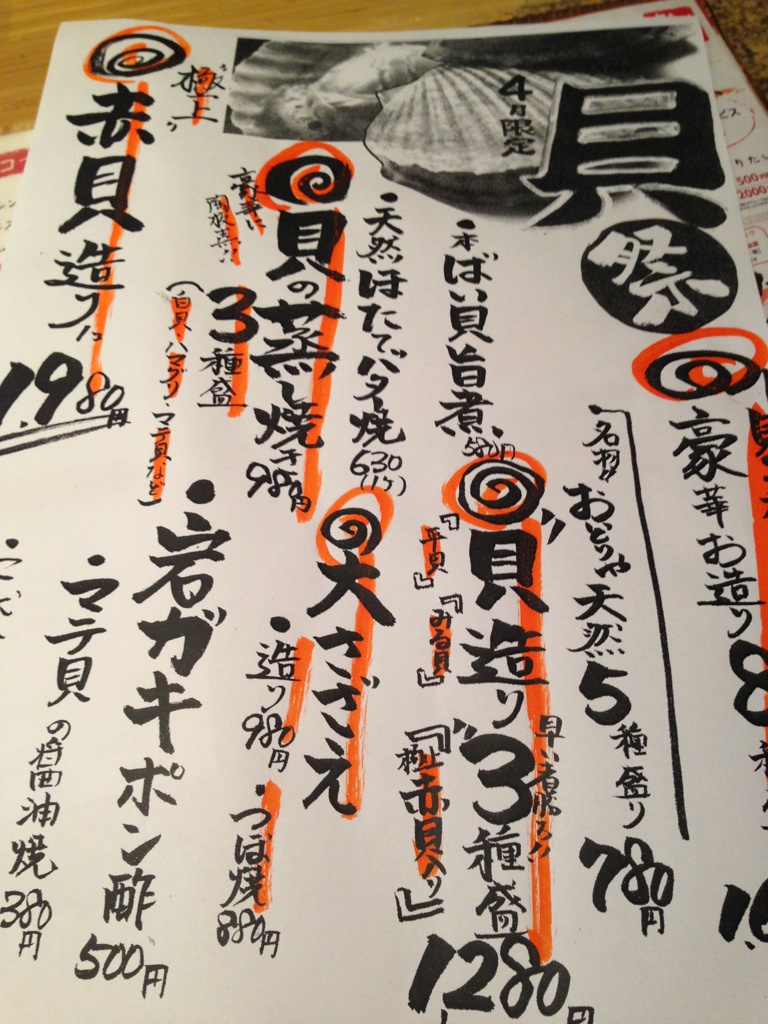 貝祭
4月限定
豪華お造り
名物!! おとりや天然5種盛り
780円
早い者勝ち!!
貝造り3種盛
『平貝』『みる貝』
『極上赤貝入り』
1280円
・本ばい貝旨煮
580円
・天然ほたてバター焼
630
(1ケ)
大さざえ
・造り 980円
・つぼ焼 880円
貝の蒸し焼き
980円
豪華に
3種盛
(白貝・ハマグリ・マテ貝など)
・岩ガキポン酢
500円
・マテ貝の醤油焼
380円
極上
赤貝造り
1,980円